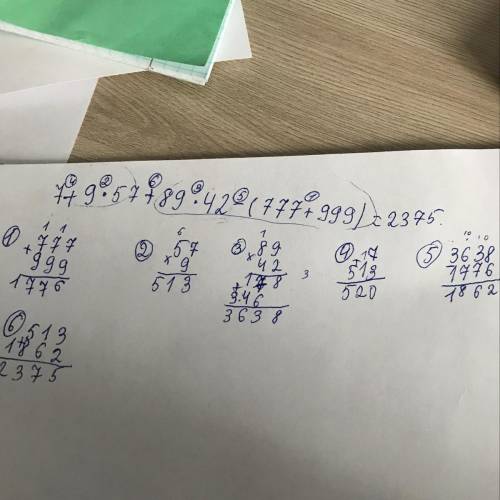 7+9·57+89·42-(777+999)=2375.
④ ② ⑥ ③ ⑤ ①
① 1 1
+777
999
1776
② 6
×57
9
513
③ 1
×89
42
178
346
3638
④ +7
513
520
⑤ . . 10 10
3638
1776
1862
⑥ +513
1862
2375